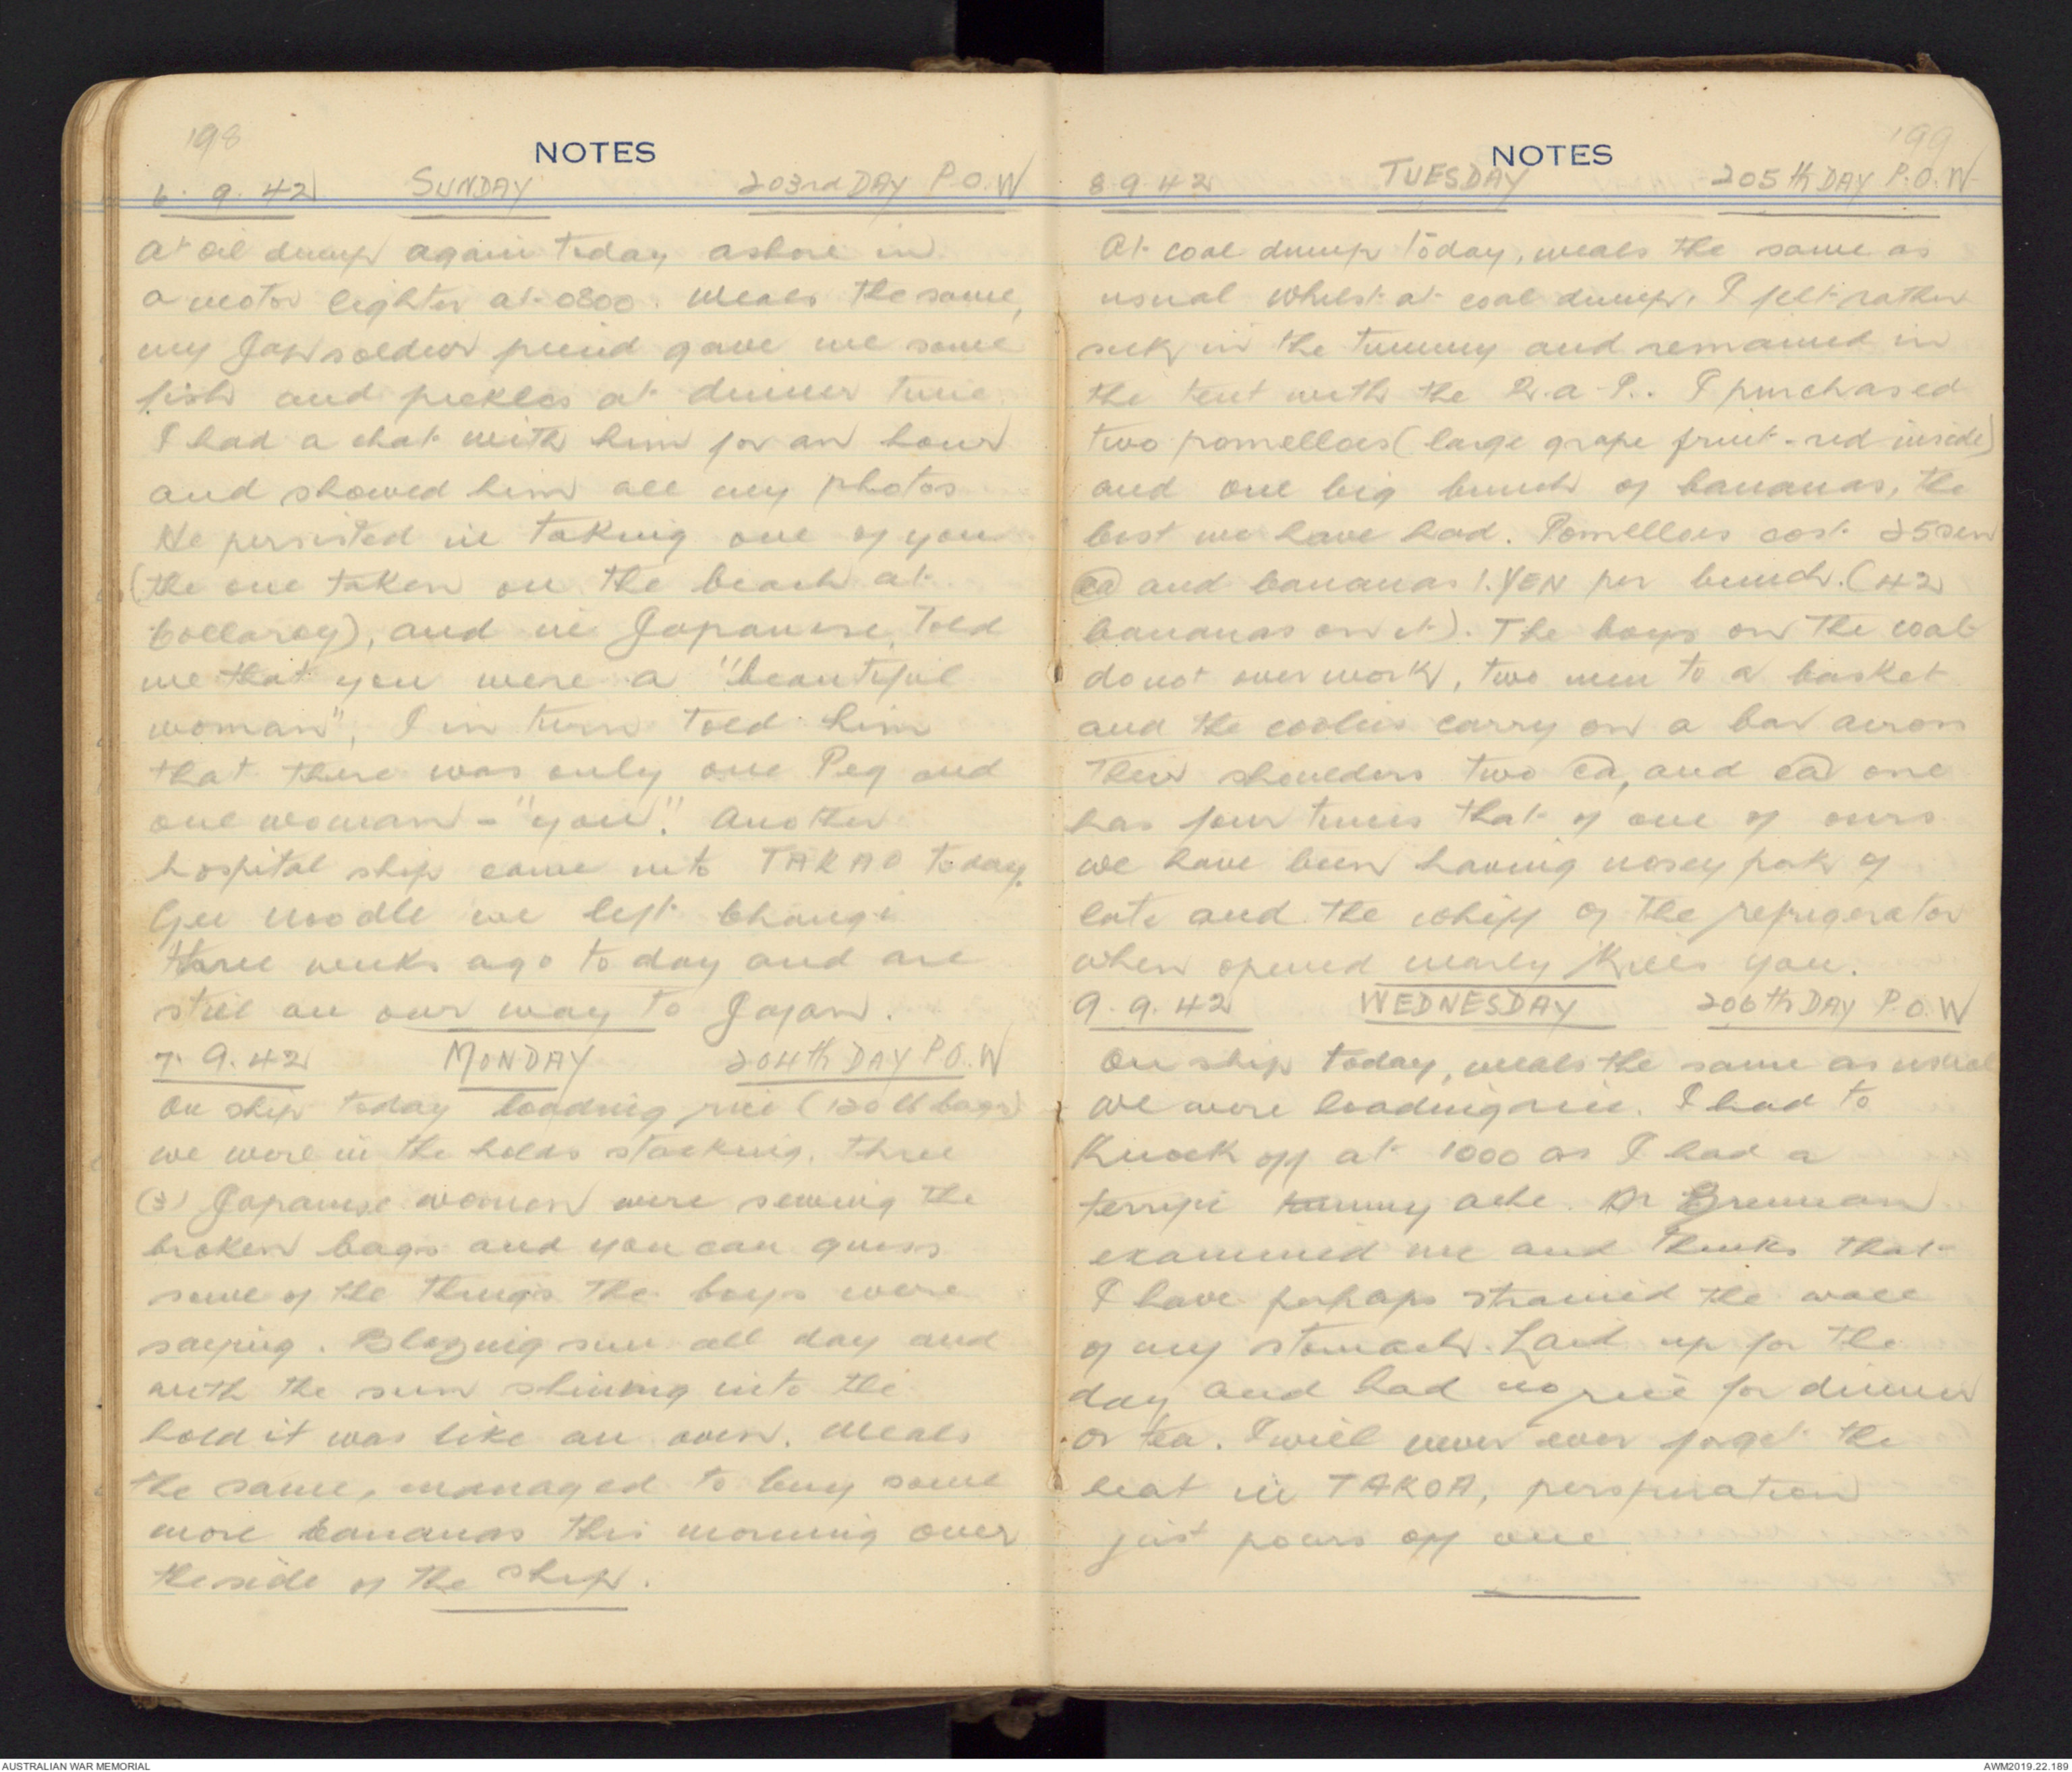 198
NOTES
6. 9. 42 SUNDAY 203rd DAY P.O.W
At oil dump again today ashore in
a motor lighter at 0800. Meals the same,
my Jap soldier friend gave me some
fish and pickles at dinner time
I had a chat with him for an hour
and showed him all my photos
He persisted in taking one of you
(the one taken on the beach at
Collaroy), and in Japanese told
me that you were a "beautiful
woman", I in turn told him
that there was only one Peg and
one woman - "you". Another
hospital ship came into TAKAO today.
Gee noodle we left Changi
three weeks ago today and are
still on our way to Japan.
7. 9. 42 MONDAY 204th DAY P.O.W
On ship today loading rice (120 lb bags)
we were in the holds stacking. Three
(3) Japanese women were sewing the
broken bags and you can guess
some of the things the boys were
saying. Blazing sun all day and
with the sun shining into the
hold it was like an oven. Meals
the same, managed to buy some
more bananas this morning over
the side of the ship.
199
NOTES
8 9 42 TUESDAY 205th DAY P.O.W
At coal dump today, meals the same as
usual whilst at coal dump. I felt rather
sick in the tummy and remained in
the tent with the R.A.P.. I purchased
two pomelloes (large grape fruit - red inside)
and one big bunch of bananas, the
best we have had. Pomelloes cost 25 sen
ea and bananas 1. YEN per bunch. (42
bananas on it). The boys on the coal
do not over work, two men to a basket
and the coolies carry on a bar across
their shoulders two ea, and ea one
has four times that of one of ours
we have been having nosey pork of
late and the whiff of the refrigerator
when opened nearly kills you.
9. 9. 42 WEDNESDAY 206th DAY P.O.W
On ship today, meals the same as usual
we were loading rice. I had to
knock off at 1000 as I had a
terrific tummy ache. Dr Brennan
examined me and thinks that
I have perhaps strained the wall
of my stomach. Laid up for the
day and had no rice for dinner
or tea. I will never ever forget the
heat in TAKOA, perspiration
just pours off one
AUSTRALIAN WAR MEMORIAL
AWM2019.22.189